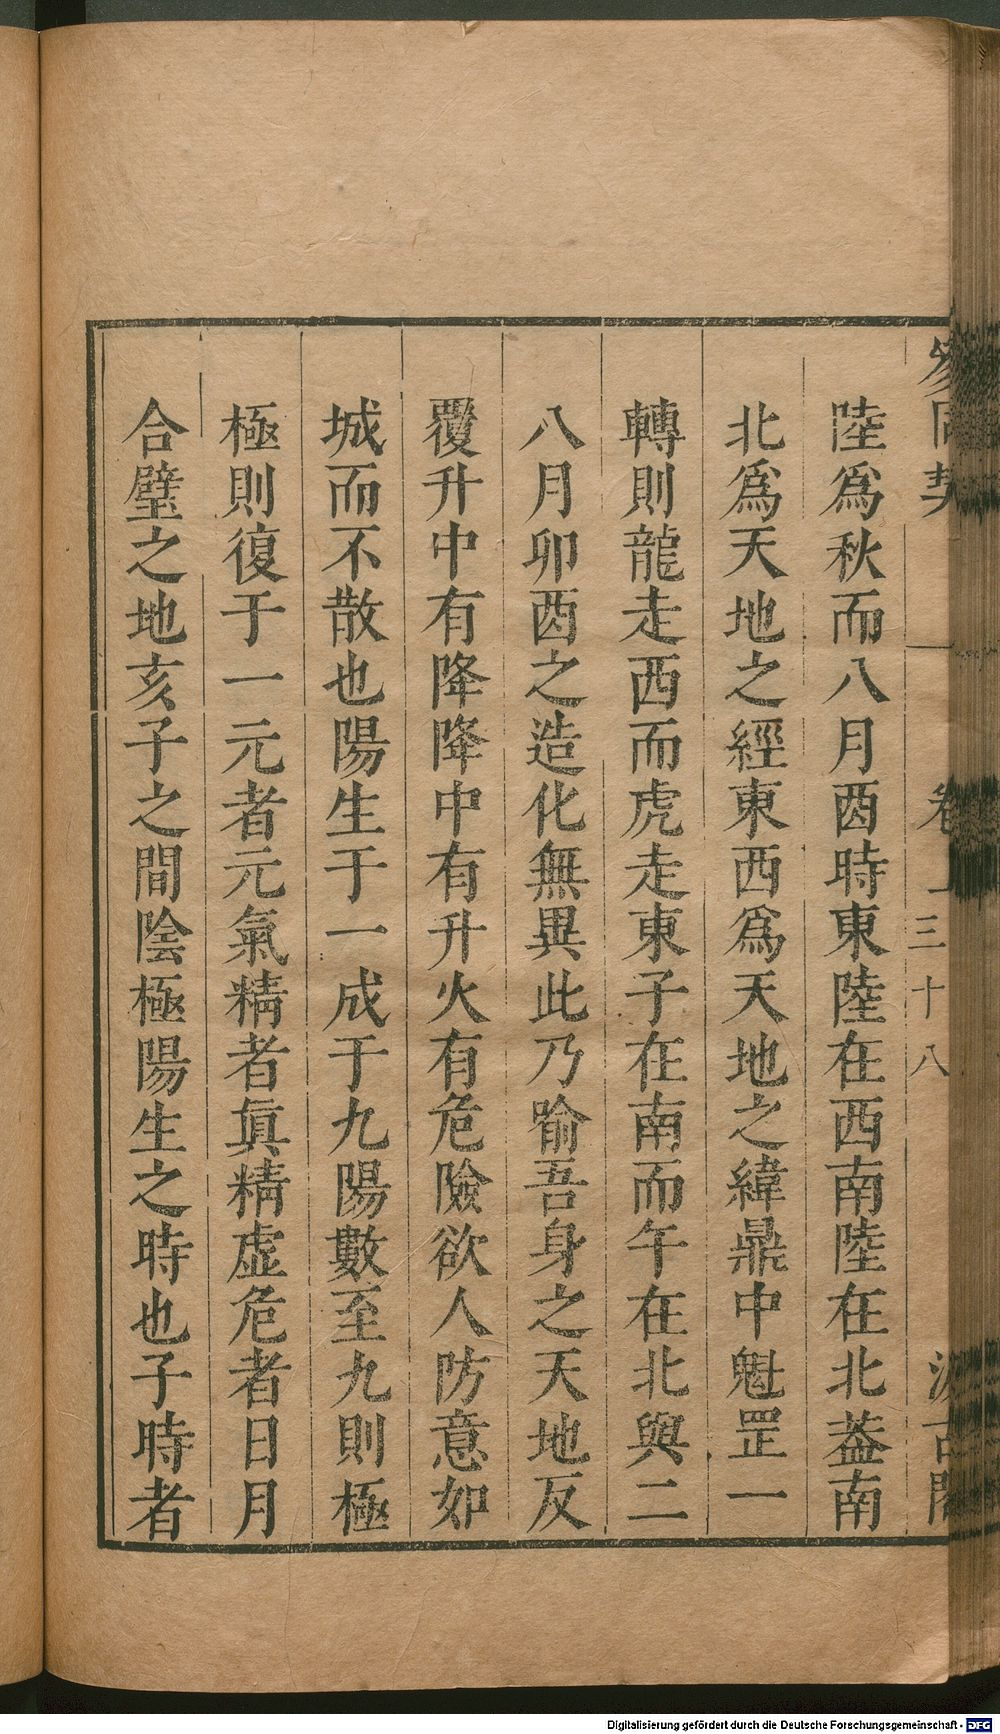 參同契 卷上 三十八 汲古閣
陸爲秋而八月酉時東陸在西南陸在北葢南
北爲天地之經東西爲天地之緯鼎中魁罡一
轉則龍走西而虎走東子在南而午在北與二
八月卯酉之造化無異此乃喻吾身之天地反
覆升中有降降中有升火有危險欲人防意如
城而不散也陽生于一成于九陽數至九則極
極則復于一元者元氣精者眞精虛危者日月
合璧之地亥子之間陰極陽生之時也子時者
Digitalisierung gefördert durch die Deutsche Forschungsgemeinschaft - DFG